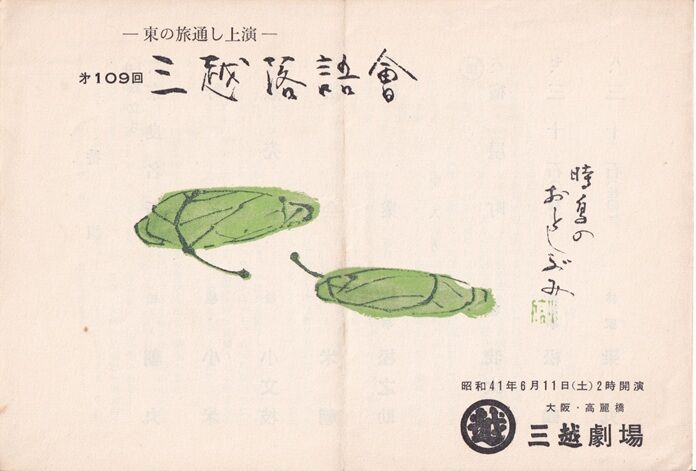 ―東の旅通し上演―
才109回
三越落語會
時鳥の
おとしぶみ
昭和41年6月11日(土)2時開演
大阪・高麗橋
越
三越劇場